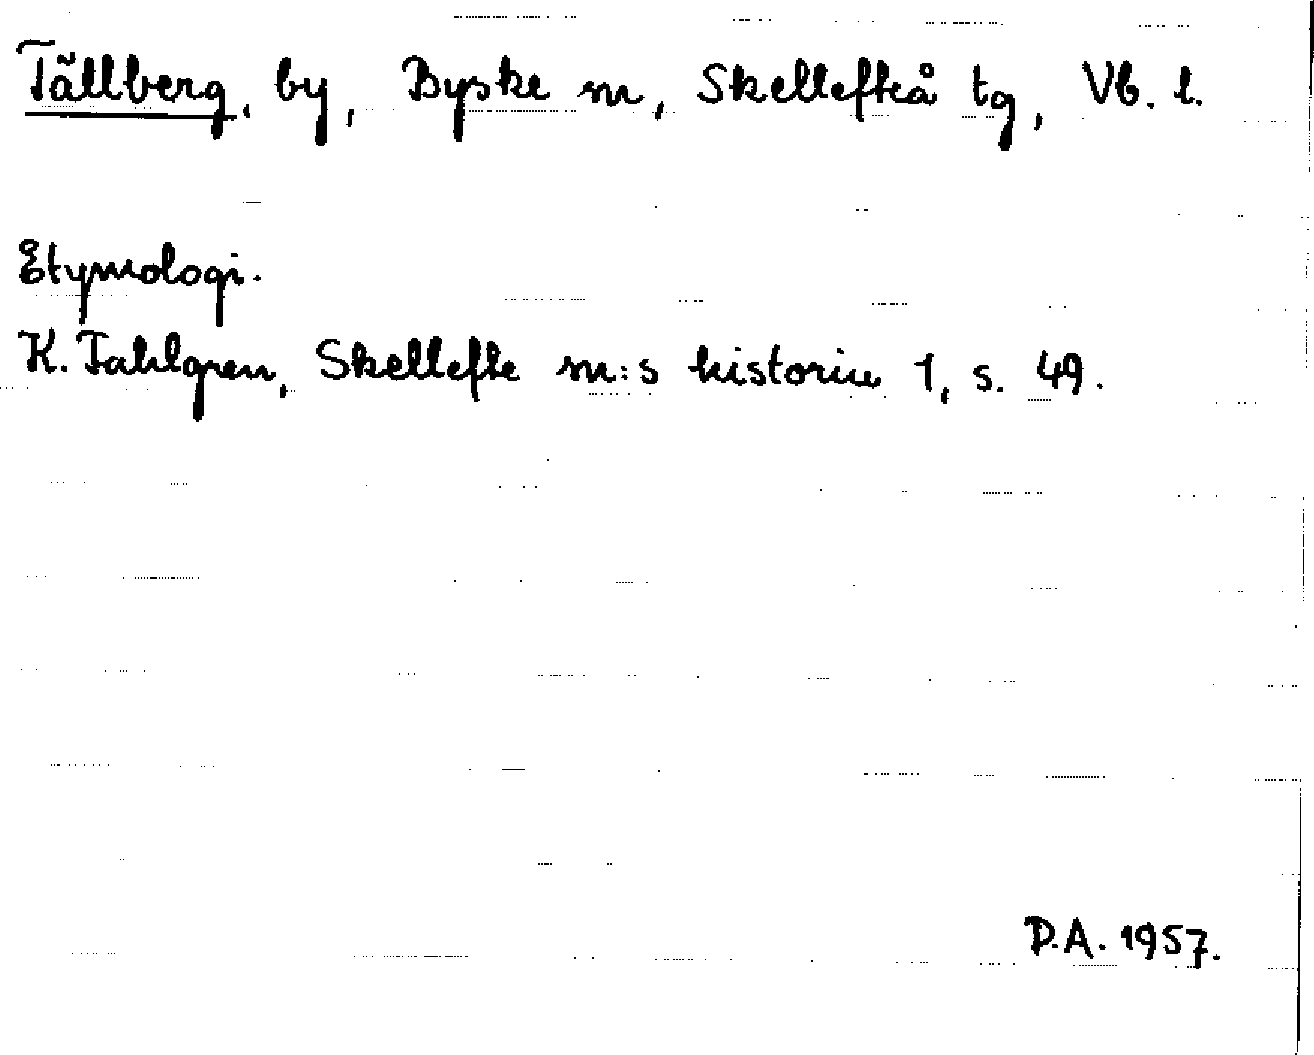 Tällberg, by, Byske sn, Skellefteå tg, Vb. l.
Etymologi.
K. Fahlgren, Skellefte sn:s historia 1, s. 49.
P.A. 1957.